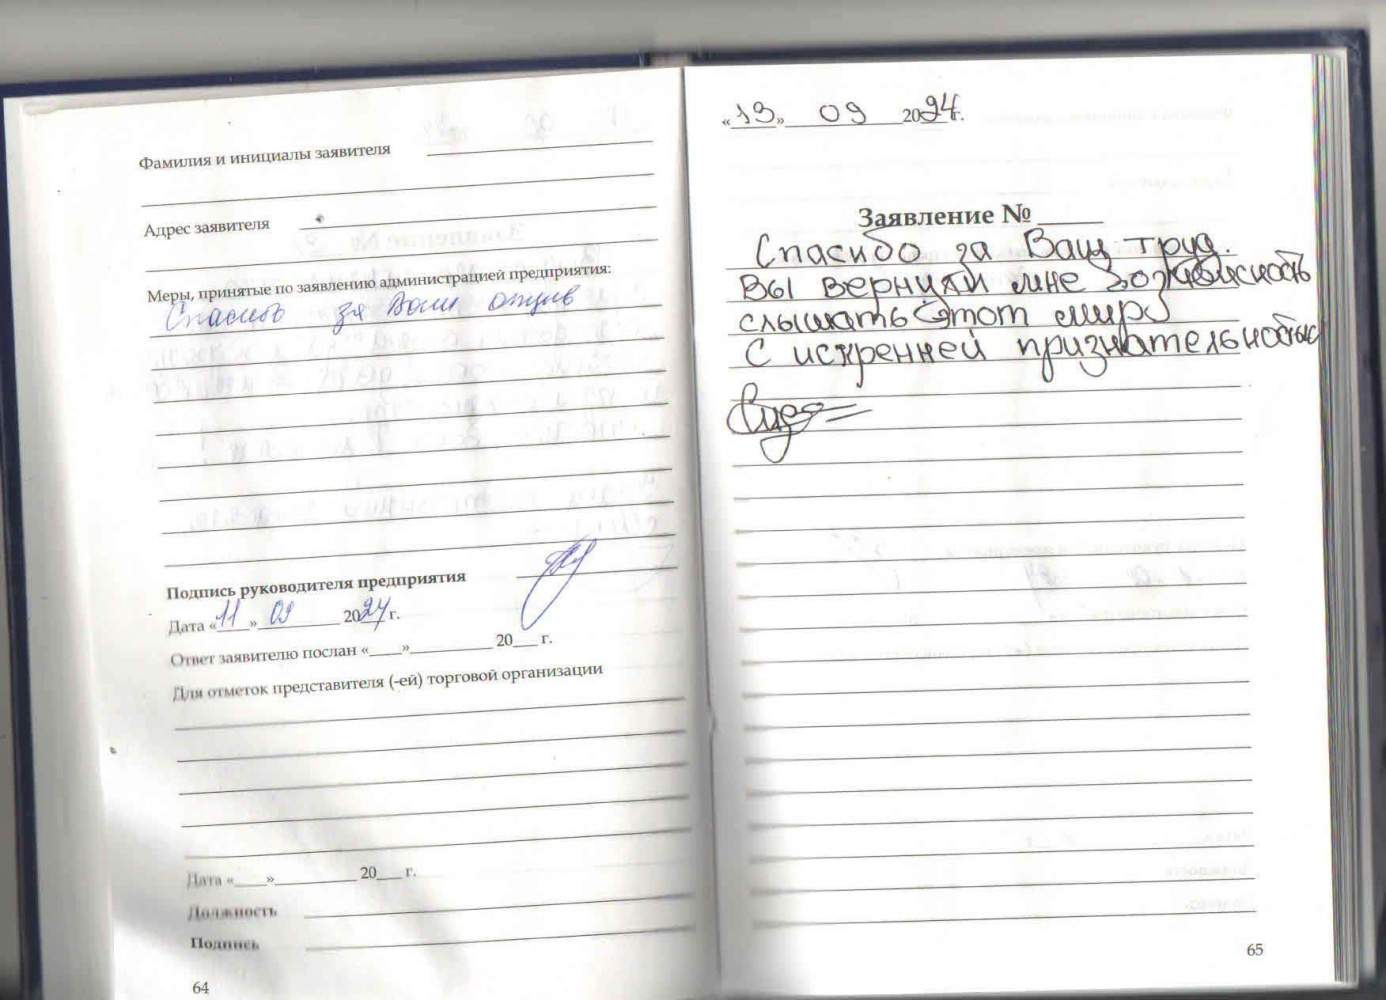 Фамилия и инициалы заявителя
Адрес заявителя
Меры, принятые по заявлению администрацией предприятия:
Спасибо за Ваш отзыв
Подпись руководителя предприятия
Дата «11» 09 2024 г.
Ответ заявителю послан «____»__________ 20___ г.
Для отметок представителя (-ей) торговой организации
Дата «____»__________ 20___ г.
Должность
Подпись
64
«13» 09 2024 г.
Заявление № _____
Спасибо за Ваш труд.
Вы вернули мне
слышать этот мир
С искренней признательностью
65